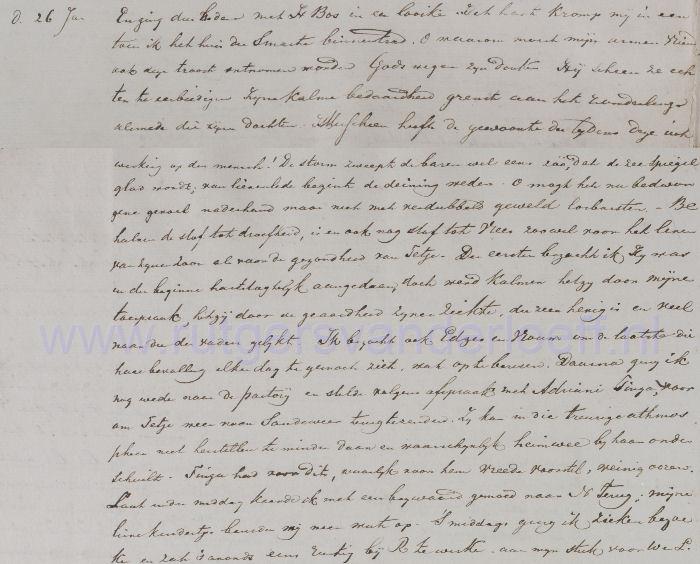 D. 26 Jan En ging dus heden met H Bos in een Mijn hart kromp mij in een
toen ik het huis der Smarte binnentrad. O waarom moest mijn armen vriend
ook deze troost ontnomen worden Gods wegen zijn donker Hij scheen ze ech
ter te eerbiedigen Zijne kalme bedaardheid grenst aan het
die zijne dochter. Misschien heeft de gewoonte des lijdens deze uit
werking op den mensch! De storm zweept de baren wel eens zóó, dat de zee spiegel
glad wordt; van lieverlede begint de deining weder. O mogt het nu bedwon
gene gevoel naderhand maar niet met verdubbeld geweld losbarsten. – Be
halven de stof tot droefheid, is er ook nog stof tot Vrees zoowel voor het leven
van zijnen Zoon als voor de gezondheid van Tetje. Den eersten bezocht ik Hij was
in den beginne hartstogtelijk aangedaan, doch werd kalmer hetzij door mijne
toespraak, hetzij door de geaardheid zijner Ziekte, die zeer hevig is en veel
naar die der vader gelijkt. Ik bezocht ook Edzes en Vrouw om de laatste die
hare bevalling elken dag te gemoet ziet, wat op te beuren. Daarna ging ik
nog weder naar de pastorij en stelde volgens afspraak met Adriani Tinga voor
om Tetje weer naar Sandeweer terugtezenden. Zij kan in die treurige athmos
pheer niet herstellen te minder daar en waarschijnlijk heimwee bij haar onder
schuilt. Tinga had voor dit, waarlijk voor hem wreede voorstel, weinig ooren.
Laat in den middag keerde ik met een bezwaard gemoed naar H terug; mijne
lieve kindertjes beurden mij weer wat op. 'S middags ging ik Zieken bezoe
ken en zat 's avonds eens rustig bij R te werken aan mijn stuk voor W. L.
www.rutgersvanderloeff.nl